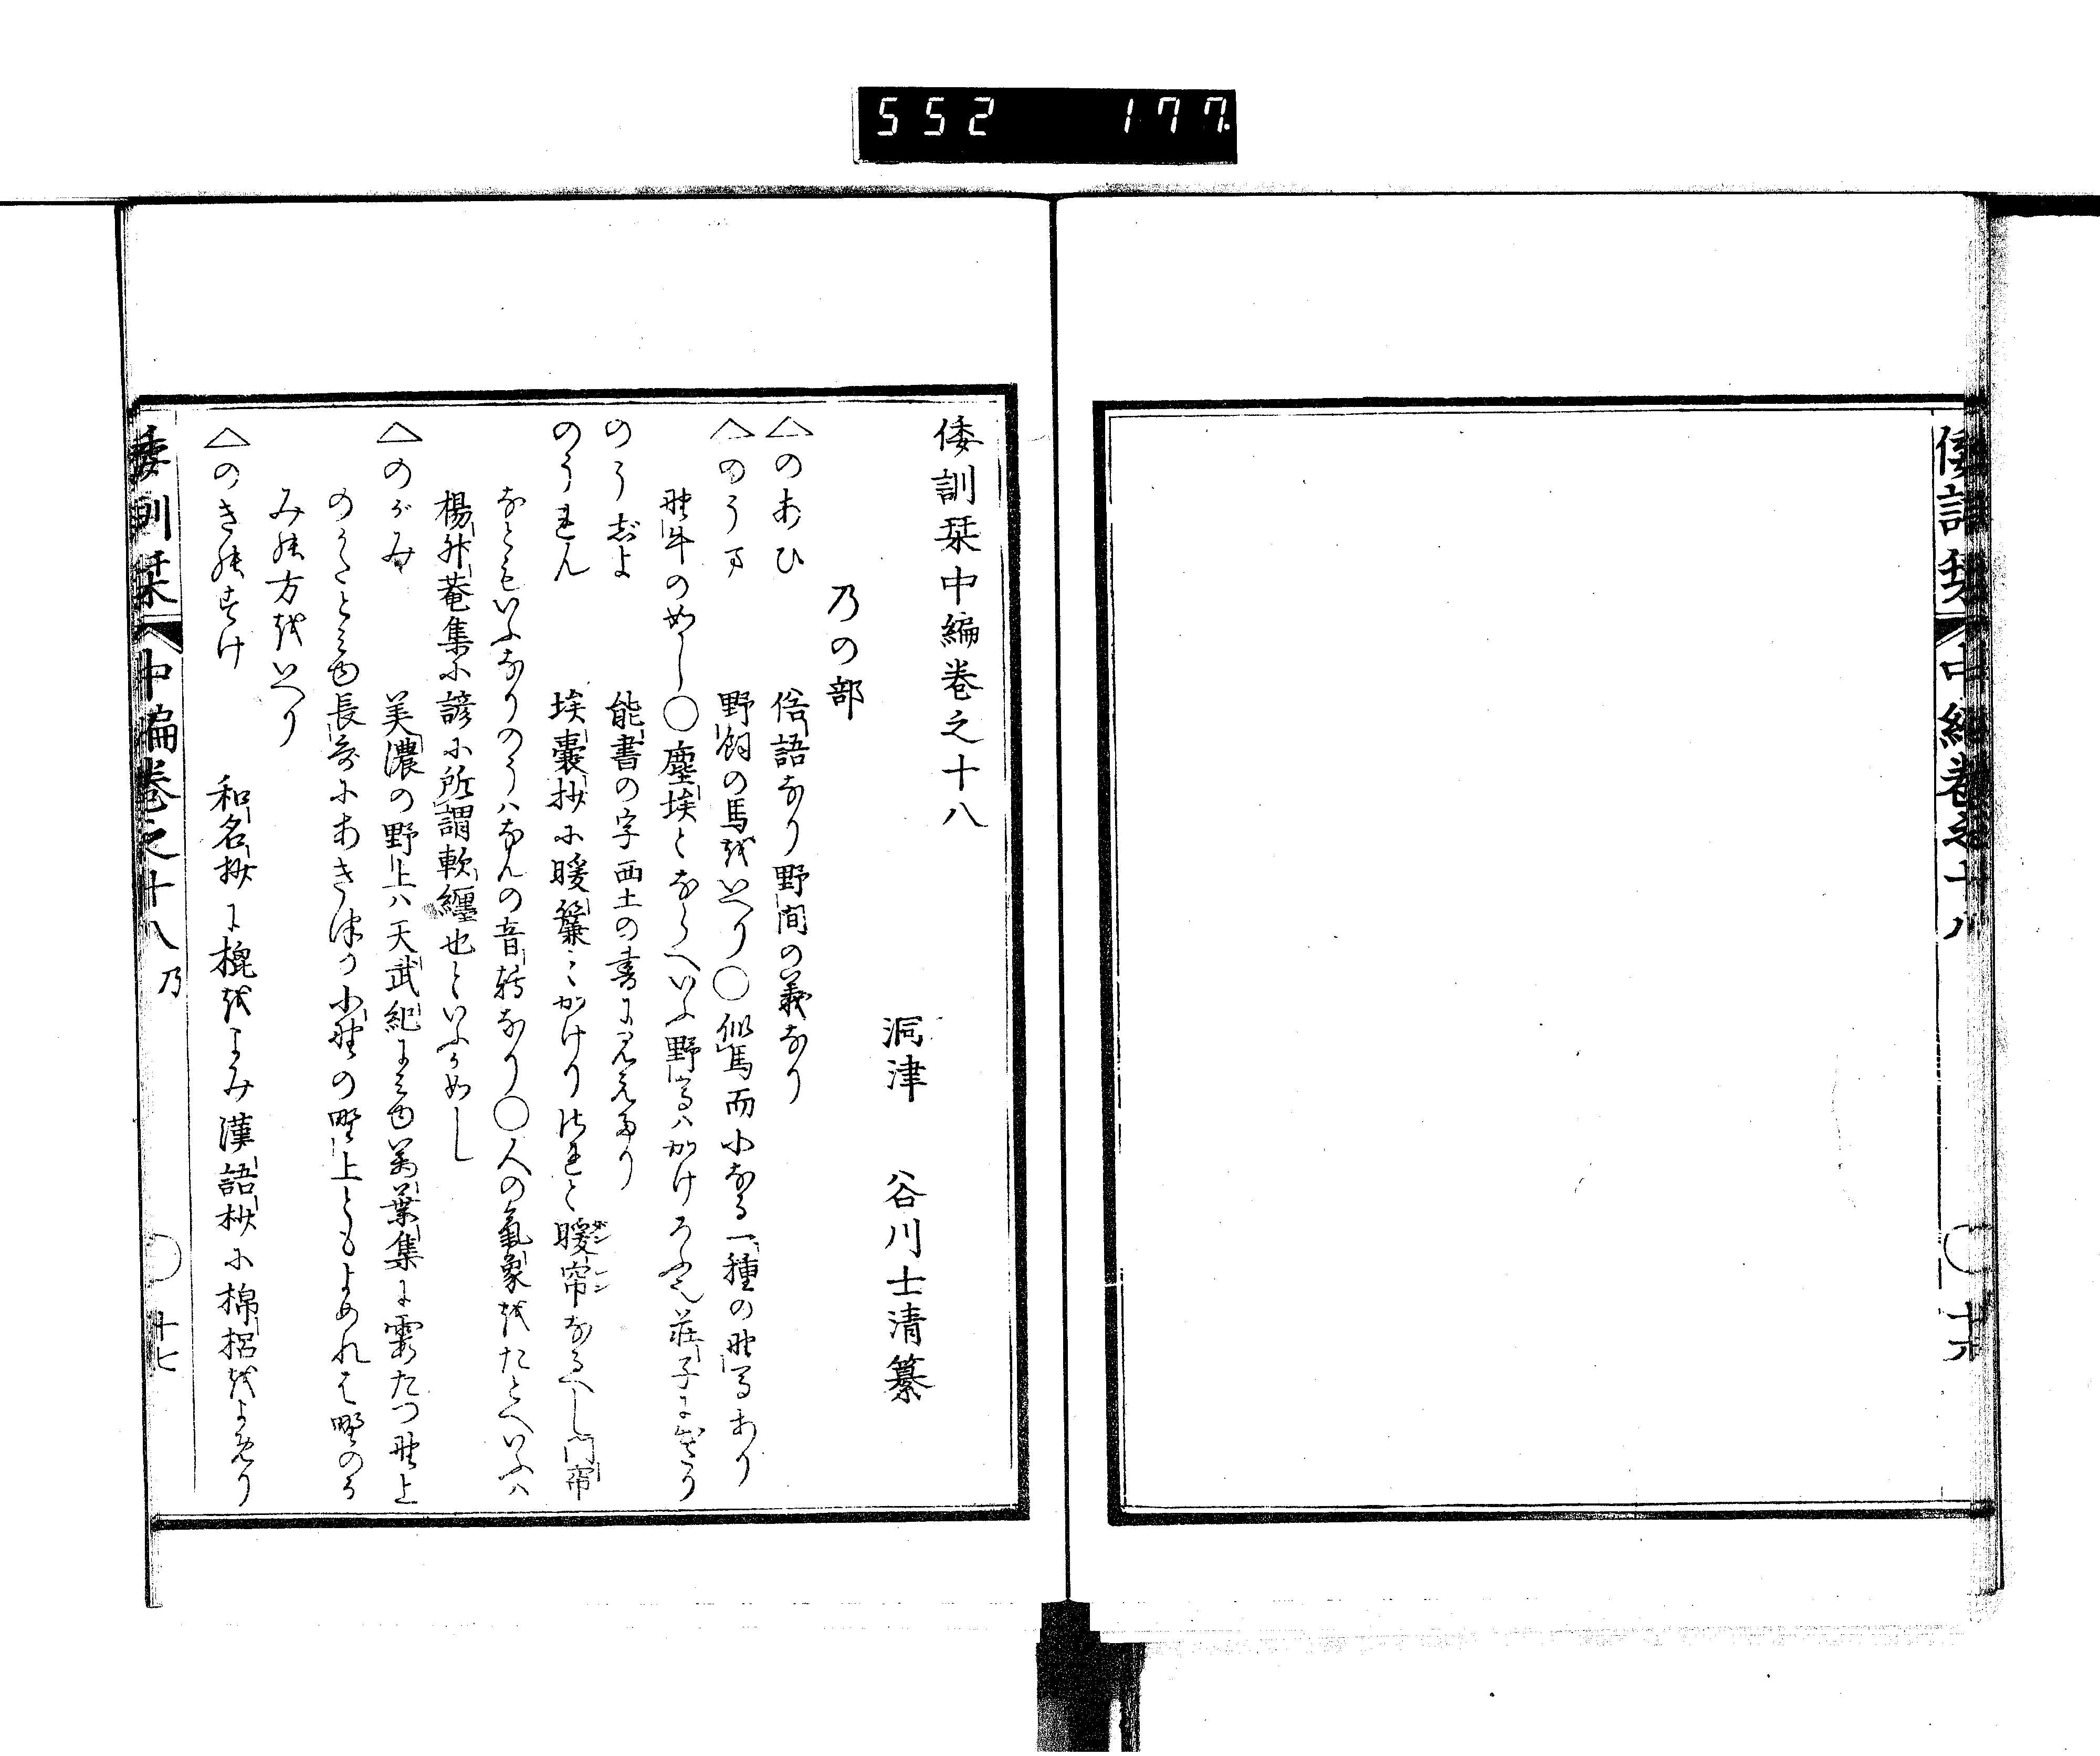 552 177
倭訓栞 中編巻之十八 十六
倭訓栞中編巻之十八
洞津 谷川士清纂
乃の部
△のあひ 俗語なり野間の義なり
△のうま 野飼の馬をいへり○似馬而小なる一種の野馬あり
野牛の如し○塵埃とならへいふ野馬ハかけろふ也荘子に
のうじよ 能書の字西土の書に見えたり
のうれん 埃嚢抄に暖簾とかけり されと暖帘なるへし門帘
ノンレン
なともいふなりのうハなんの音轉なり○人の氣象をたとへいふハ
楊升菴集に諺に所謂軟纏也といふか如し
△のがみ 美濃の野上ハ天武紀に見ゆ萬葉集に霞たつ野上
のかたと見ゆ長哥にあきつの小野の野上ともよめれは野のか
みの方をいへり
△のきのすけ 和名抄に㮰をよみ漢語抄に棉梠をよめり
倭訓栞 中編巻之十八 乃 十七